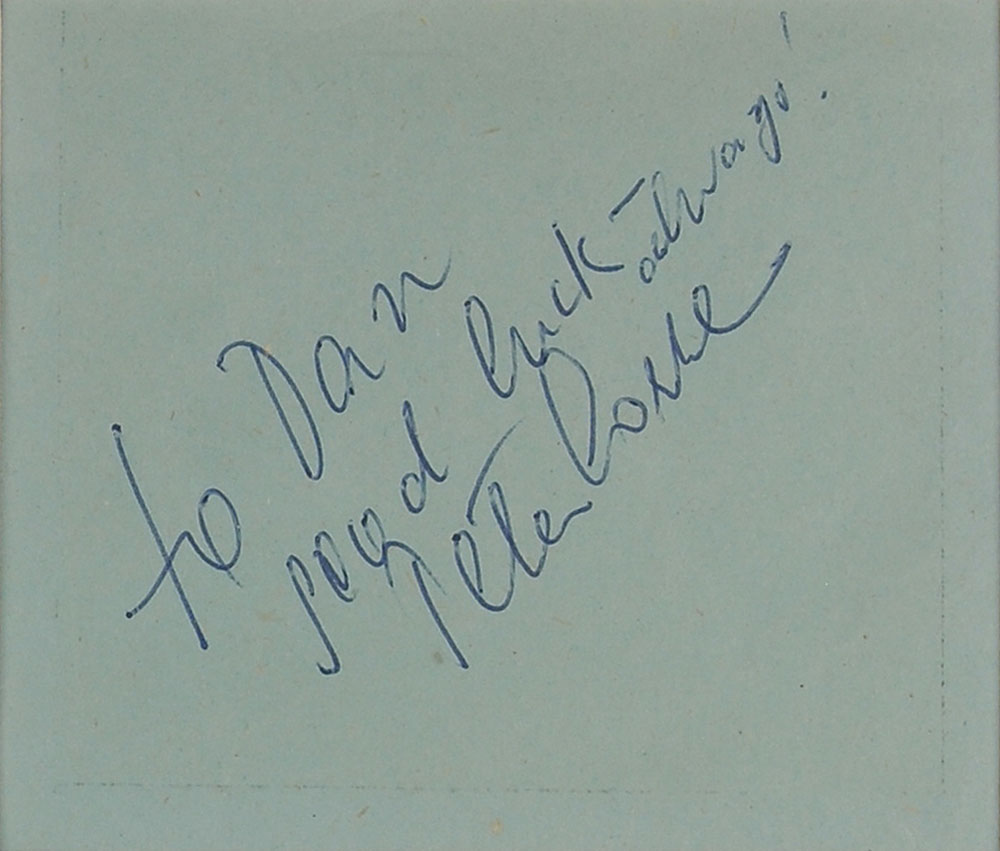 to Dan
good luck always!
Peter Lorre